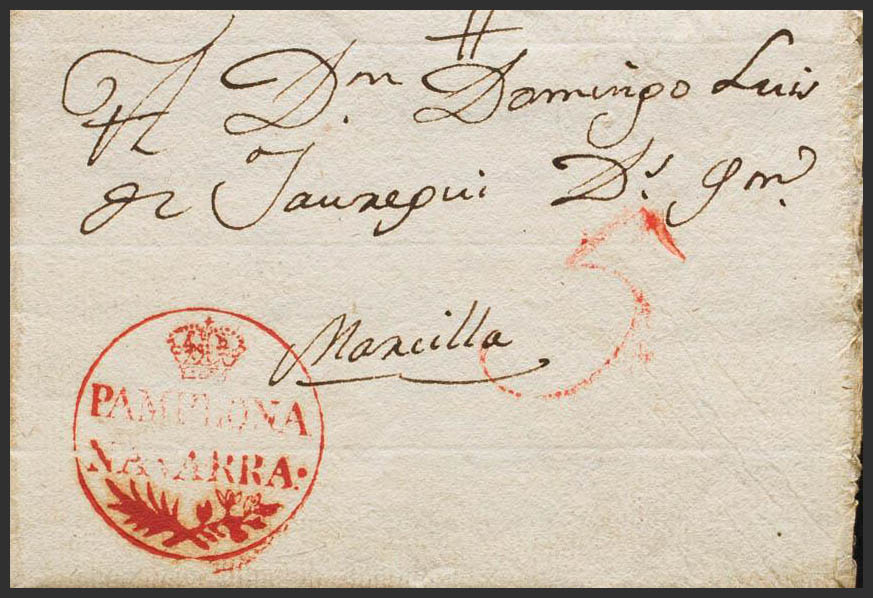 A Dn. Domingo Luis
de Jauregui Ds. gme.
Marcilla
5
PAMPLONA
NAVARRA.